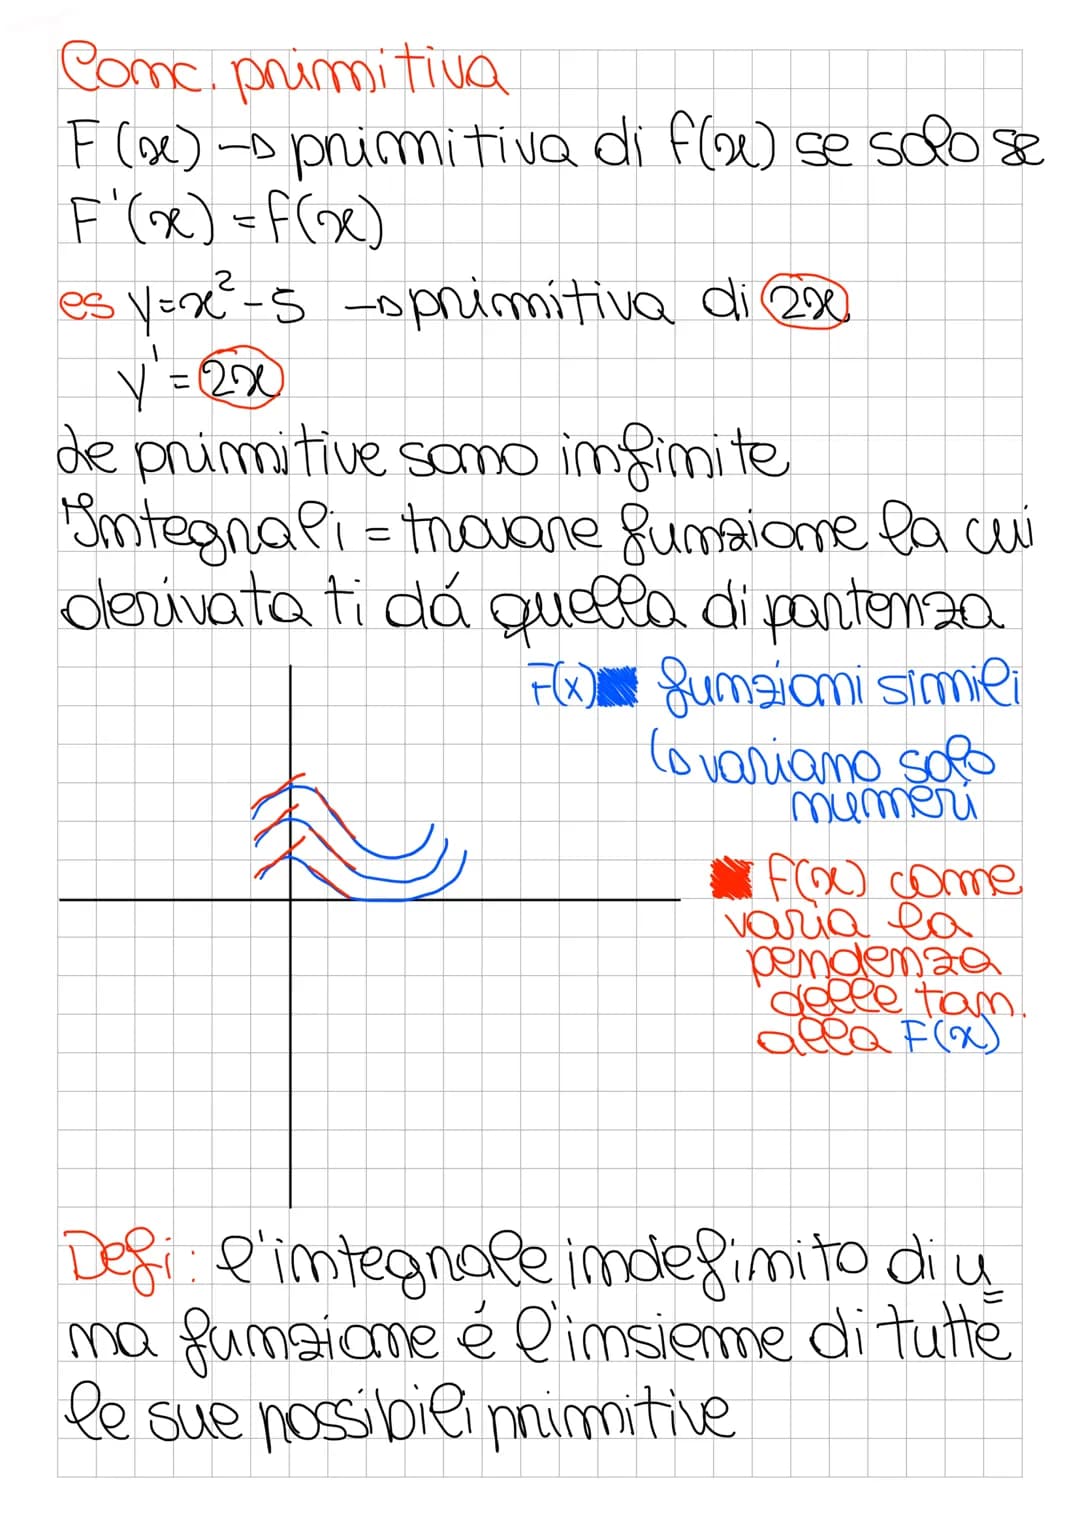 Conc. primitiva
F(x) → primitiva di f(x) se solo se
F'(x) = f(x)
es y=x²-5 → primitiva di 2x
y' = 2x
Le primitive sono infinite
Integrali = trovare funzione la cui
derivata ti dá quella di partenza
F(x) funzioni simili
↳ variano solo
numeri
f(x) come
varia la
pendenza
delle tan.
alla F(x)
Defi: l'integrale indefinito di u=
na funzione é l'insieme di tutte
le sue possibili primitive